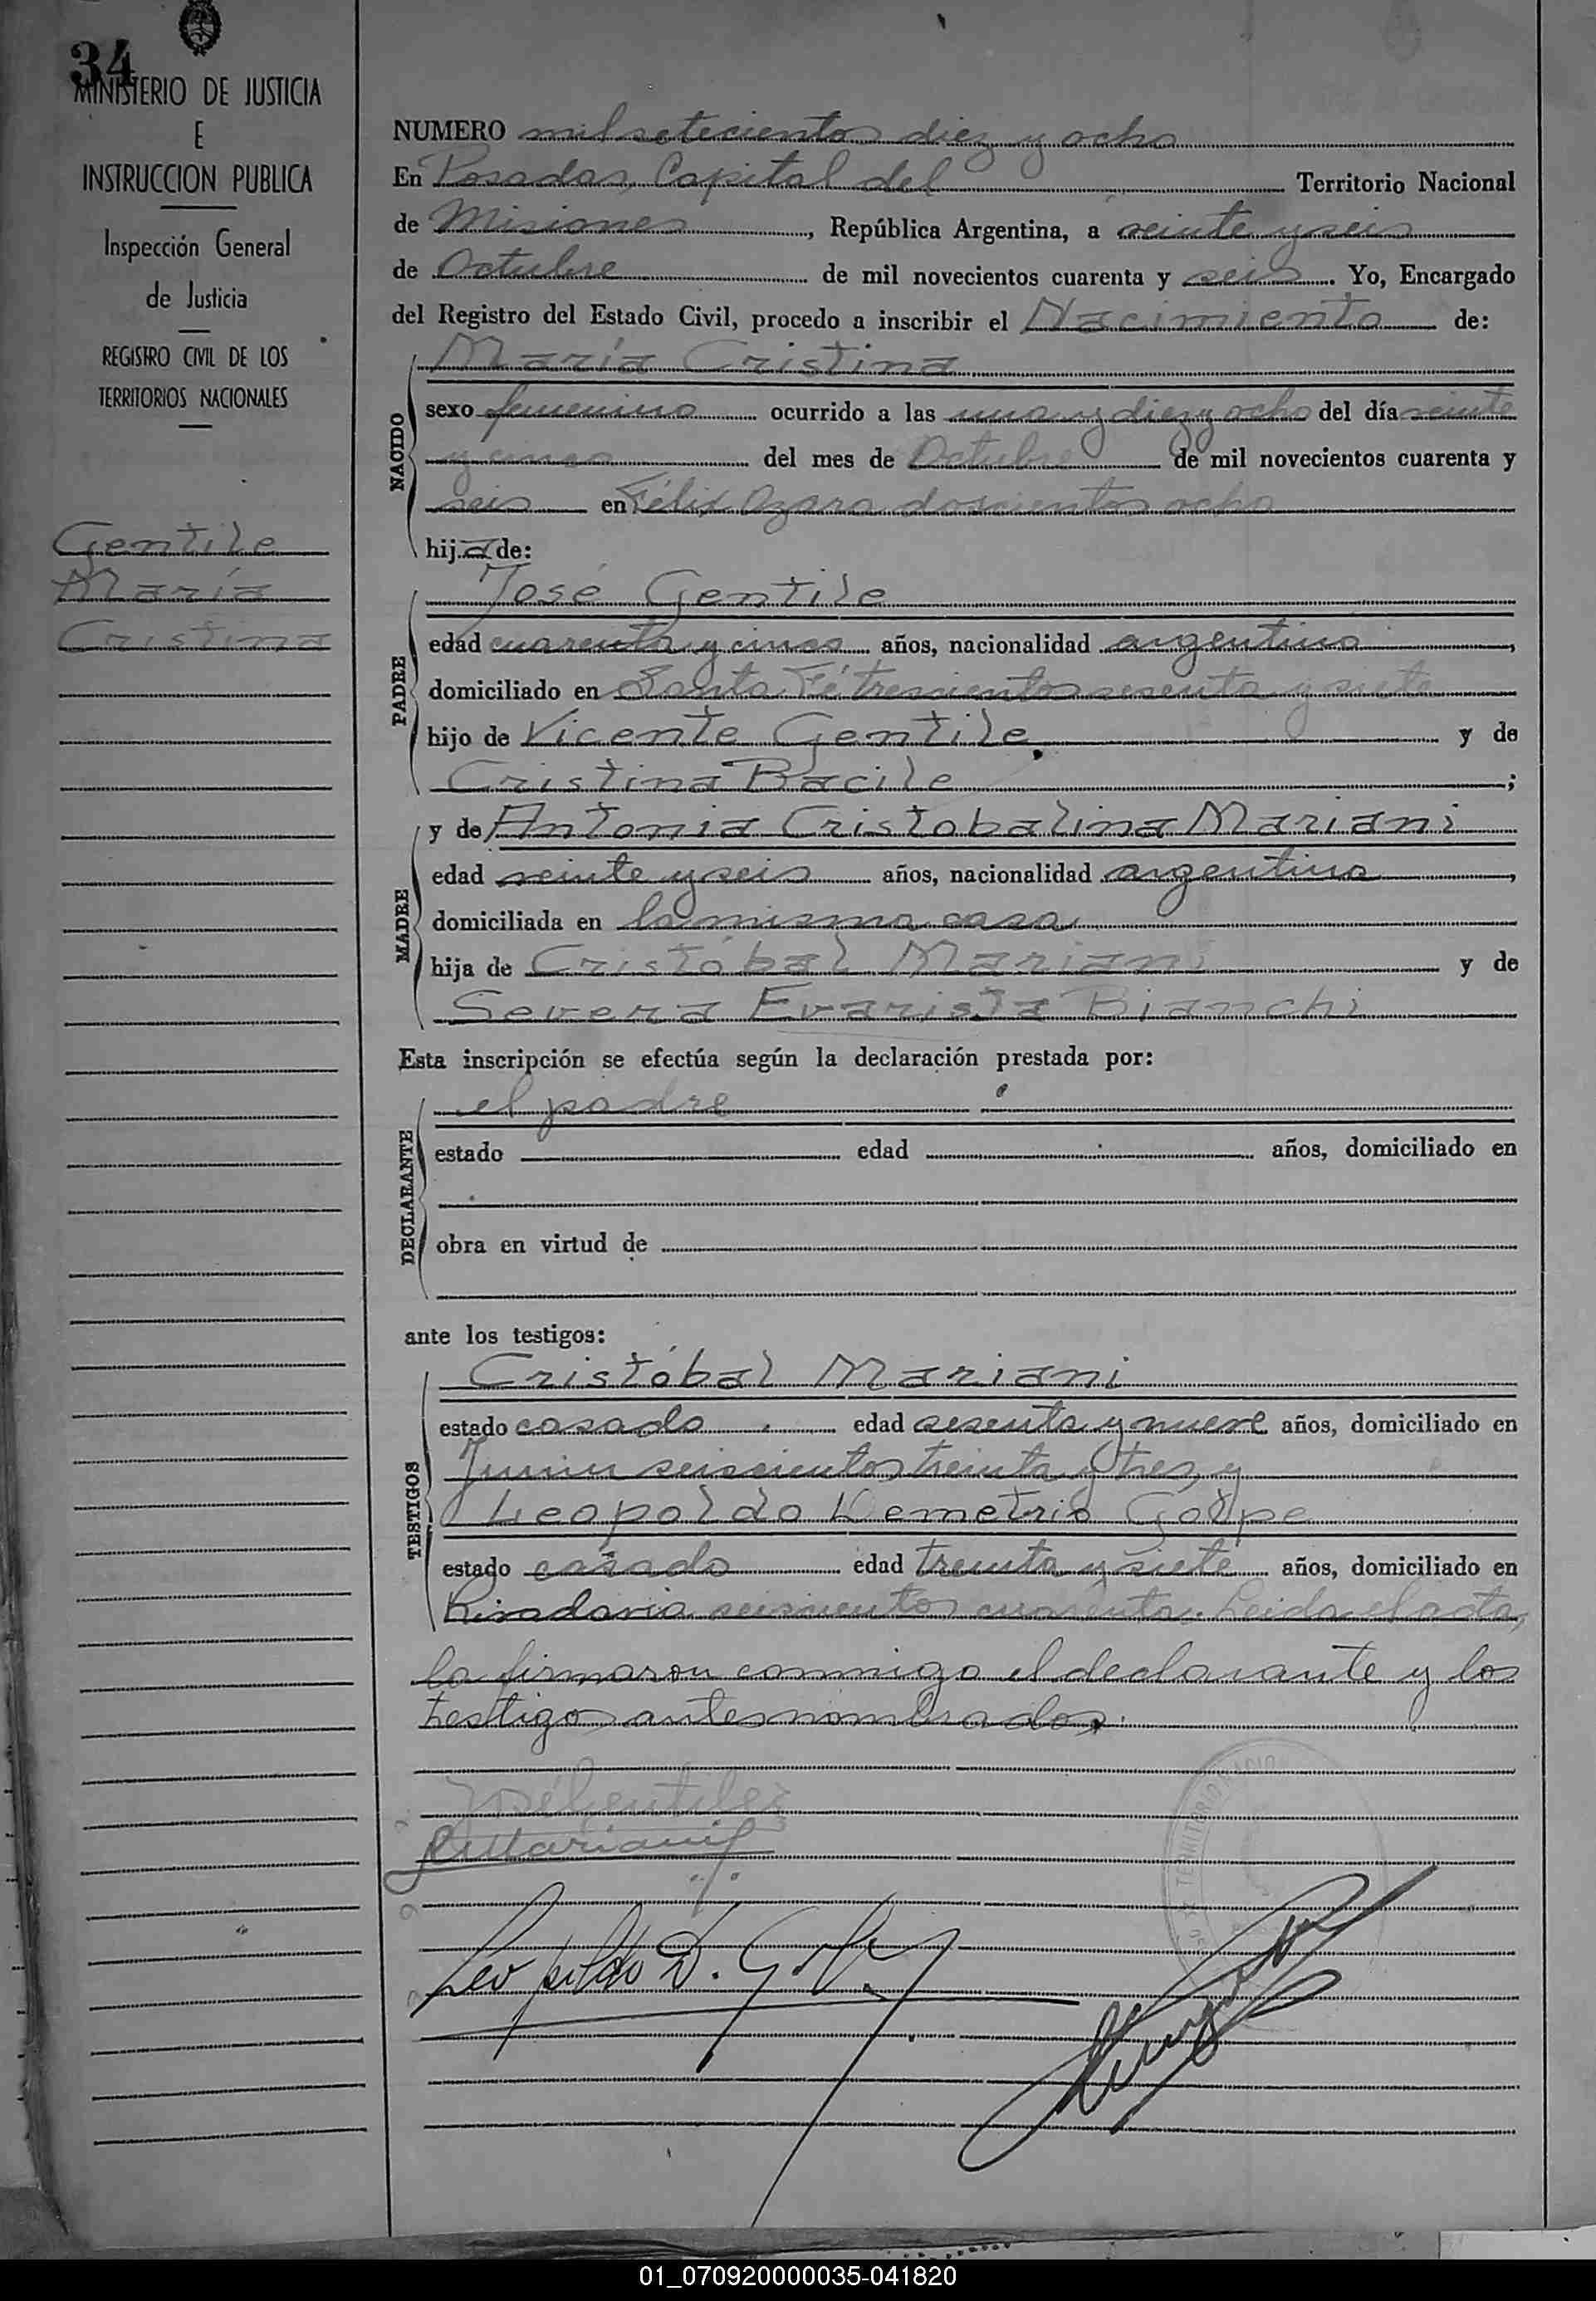 34
MINISTERIO DE JUSTICIA
E
INSTRUCCION PUBLICA
Inspección General
de Justicia
REGISTRO CIVIL DE LOS
TERRITORIOS NACIONALES
Gentile
María
Cristina
NUMERO mil setecientos diez y ocho
En Posadas, Capital del Territorio Nacional
de Misiones, República Argentina, a veinte y seis
de Octubre de mil novecientos cuarenta y seis. Yo, Encargado
del Registro del Estado Civil, procedo a inscribir el Nacimiento de:
María Cristina
NACIDO
sexo femenino ocurrido a las una y diez y ocho del día veinte
y cinco del mes de Octubre de mil novecientos cuarenta y
seis en Félix Azara doscientos ocho
hija de:
José Gentile
PADRE
edad cuarenta y cinco años, nacionalidad argentino,
domiciliado en Santa Fé trescientos sesenta y siete
hijo de Vicente Gentile y de
Cristina Bacile;
y de Antonia Cristobalina Mariani
MADRE
edad veinte y seis años, nacionalidad argentina,
domiciliada en la misma casa
hija de Cristóbal Mariani y de
Severa Evarista Bianchi
Esta inscripción se efectúa según la declaración prestada por:
el padre
DECLARANTE
estado edad años, domiciliado en
obra en virtud de
ante los testigos:
Cristóbal Mariani
TESTIGOS
estado casado edad sesenta y nueve años, domiciliado en
Junin seiscientos treinta y tres, y
Leopoldo Demetrio Golpe
estado casado edad treinta y siete años, domiciliado en
Rivadavia seiscientos cuarenta. Leida el acta,
la firmaron conmigo el declarante y los
testigos antes nombrados.
José Gentile
Mariani
Leopoldo D. Golpe
TERRITORIO
01_070920000035-041820